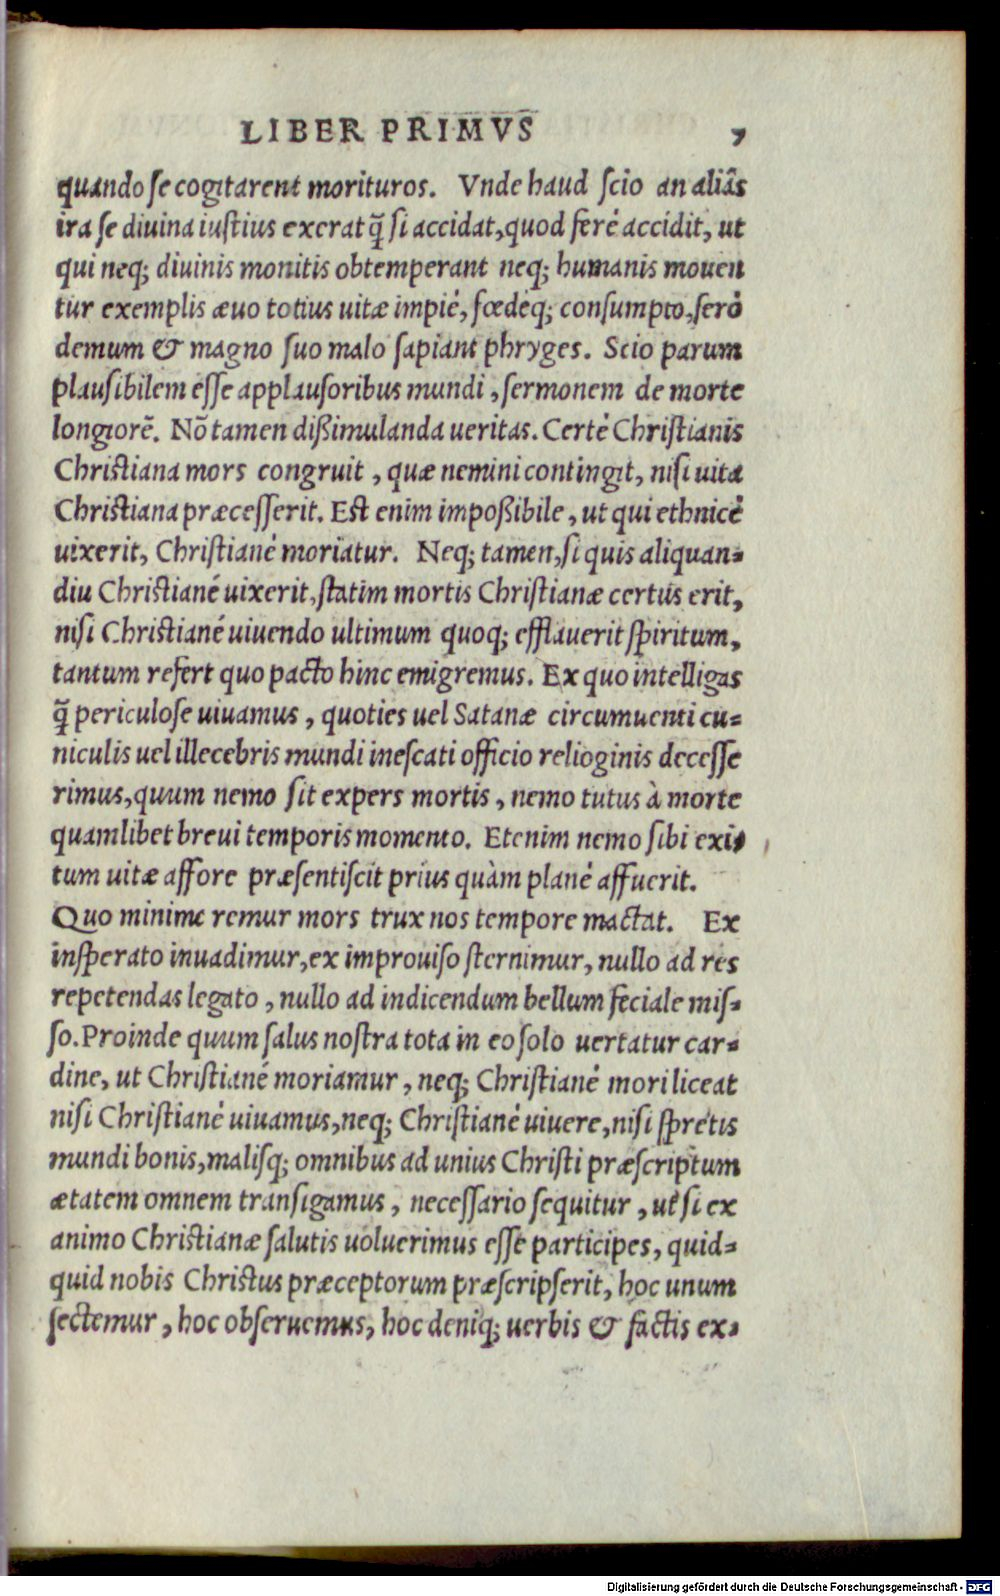 LIBER PRIMVS 7
quando se cogitarent morituros. Vnde haud scio an aliâs
ira se diuina iustius exerat q̃ si accidat, quod ferè accidit, ut
qui neq; diuinis monitis obtemperant neq; humanis mouen
tur exemplis æuo totius uitæ impiè, fœdeq; consumpto, serò
demum & magno suo malo sapiant phryges. Scio parum
plausibilem esse applausoribus mundi, sermonem de morte
longiorẽ. Nõ tamen dißimulanda ueritas. Certè Christianis
Christiana mors congruit, quæ nemini contingit, nisi uita
Christiana præcesserit. Est enim impoßibile, ut qui ethnicè
uixerit, Christianè moriatur. Neq; tamen, si quis aliquan-
diu Christianè uixerit, statim mortis Christianæ certus erit,
nisi Christianè uiuendo ultimum quoq; efflauerit spiritum,
tantum refert quo pacto hinc emigremus. Ex quo intelligas
q̃ periculose uiuamus, quoties uel Satanæ circumuenti cu-
niculis uel illecebris mundi inescati officio relioginis decesse
rimus, quum nemo sit expers mortis, nemo tutus à morte
quamlibet breui temporis momento. Etenim nemo sibi exi-
tum uitæ affore præsentiscit prius quàm planè affuerit.
Quo minime remur mors trux nos tempore mactat. Ex
insperato inuadimur, ex improuiso sternimur, nullo ad res
repetendas legato, nullo ad indicendum bellum feciale mis-
so. Proinde quum salus nostra tota in eo solo uertatur car-
dine, ut Christianè moriamur, neq; Christianè mori liceat
nisi Christianè uiuamus, neq; Christianè uiuere, nisi spretis
mundi bonis, malisq; omnibus ad unius Christi præscriptum
ætatem omnem transigamus, necessario sequitur, ut si ex
animo Christianæ salutis uoluerimus esse participes, quid-
quid nobis Christus præceptorum præscripserit, hoc unum
sectemur, hoc obseruemus, hoc deniq; uerbis & factis ex-
Digitalisierung gefördert durch die Deutsche Forschungsgemeinschaft - DFG